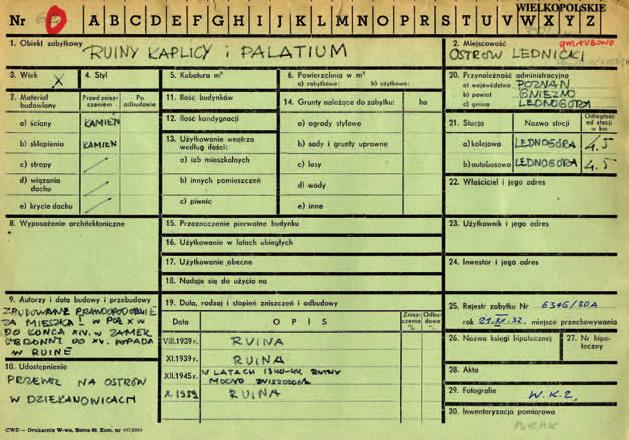 WIELKOPOLSKIE
Nr 0 A B C D E F G H I J K L M N O P R S T U V W X Y Z
1. Obiekt zabytkowy
RUINY KAPLICY i PALATIUM
2. Miejscowość
OSTRÓW LEDNICKI
3. Wiek X
4. Styl
5. Kubatura m³
6. Powierzchnia w m²
a) zabytkowe: b) użytkowe:
20. Przynależność administracyjna
a) województwo POZNAŃ
b) powiat GNIEZNO
c) gmina LEDNOGÓRA
7. Materiał budowlany
Przed zniszczeniem
Po odbudowie
a) ściany KAMIEŃ
b) sklepienia KAMIEŃ
c) stropy
d) wiązania dachu
e) krycie dachu
11. Ilość budynków
12. Ilość kondygnacji
13. Użytkowanie wnętrza według ilości:
a) izb mieszkalnych
b) innych pomieszczeń
c) piwnic
14. Grunty należące do zabytku: ha
a) ogrody stylowe
b) sady i grunty uprawne
c) lasy
d) wody
e) inne
21. Stacja
Nazwa stacji
Odległość od stacji w km
a) kolejowa LEDNOGÓRA 4.5
b) autobusowa LEDNOGÓRA 4.5
22. Właściciel i jego adres
8. Wyposażenie architektoniczne
15. Przeznaczenie pierwotne budynku
16. Użytkowanie w latach ubiegłych
17. Użytkowanie obecne
18. Nadaje się do użycia na
23. Użytkownik i jego adres
24. Inwestor i jego adres
9. Autorzy i data budowy i przebudowy
ZBUDOWANE PRAWDOPODOBNIE
ZA MIESZKA I W POŁ X W
DO KOŃCA XIV. W ZAMEK
OBRONNY OD XV. POPADA
W RUINĘ
10. Udostępnienie
PRZEWÓZ NA OSTRÓW
W DZIEKANOWICACH
19. Data, rodzaj i stopień zniszczeń i odbudowy
Data
OPIS
Zniszczenia %
Odbudowa %
VIII.1939 r. RUINA
XI.1939 r. RUINA
XII.1945 r. W LATACH 1940-44 RUINY
MOCNO ZNISZCZONE
X.1959 RUINA
25. Rejestr zabytku Nr 6346/30A
rok 21.XI.32. miejsce przechowywania
26. Nazwa księgi hipotecznej
27. Nr hipoteczny
28. Akta
29. Fotografie W.K.Z.
30. Inwentaryzacja pomiarowa
BRAK